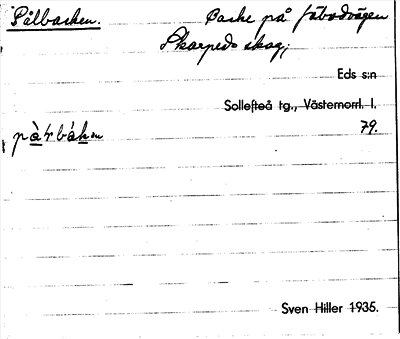 Pålbacken. Backe på fäbodvägen
Skarpeds skog;
Eds s:n
Sollefteå tg., Västernorrl. l.
79.
Sven Hiller 1935.